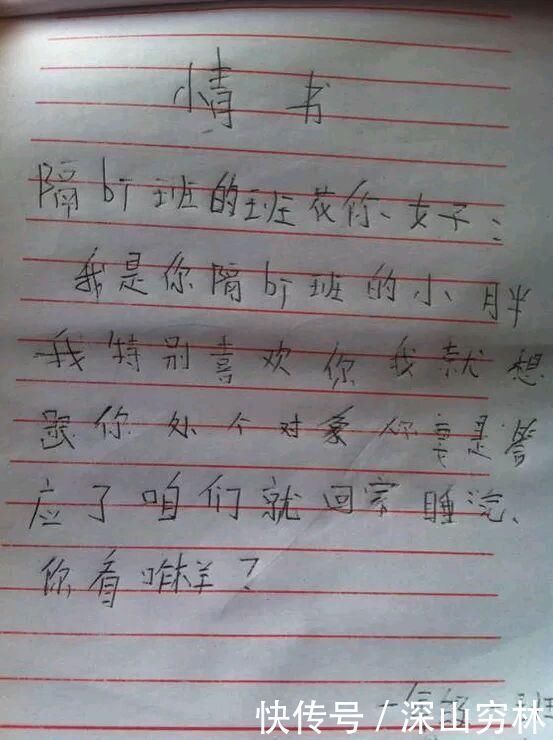 情书
隔bi班的班花你、女子:
我是你隔bi班的小月半
我特别喜欢你我就想
跟你处个对象你要是答
应了咱们就回家睡
你看咋样?
一年级
班
快传号/深山穷林